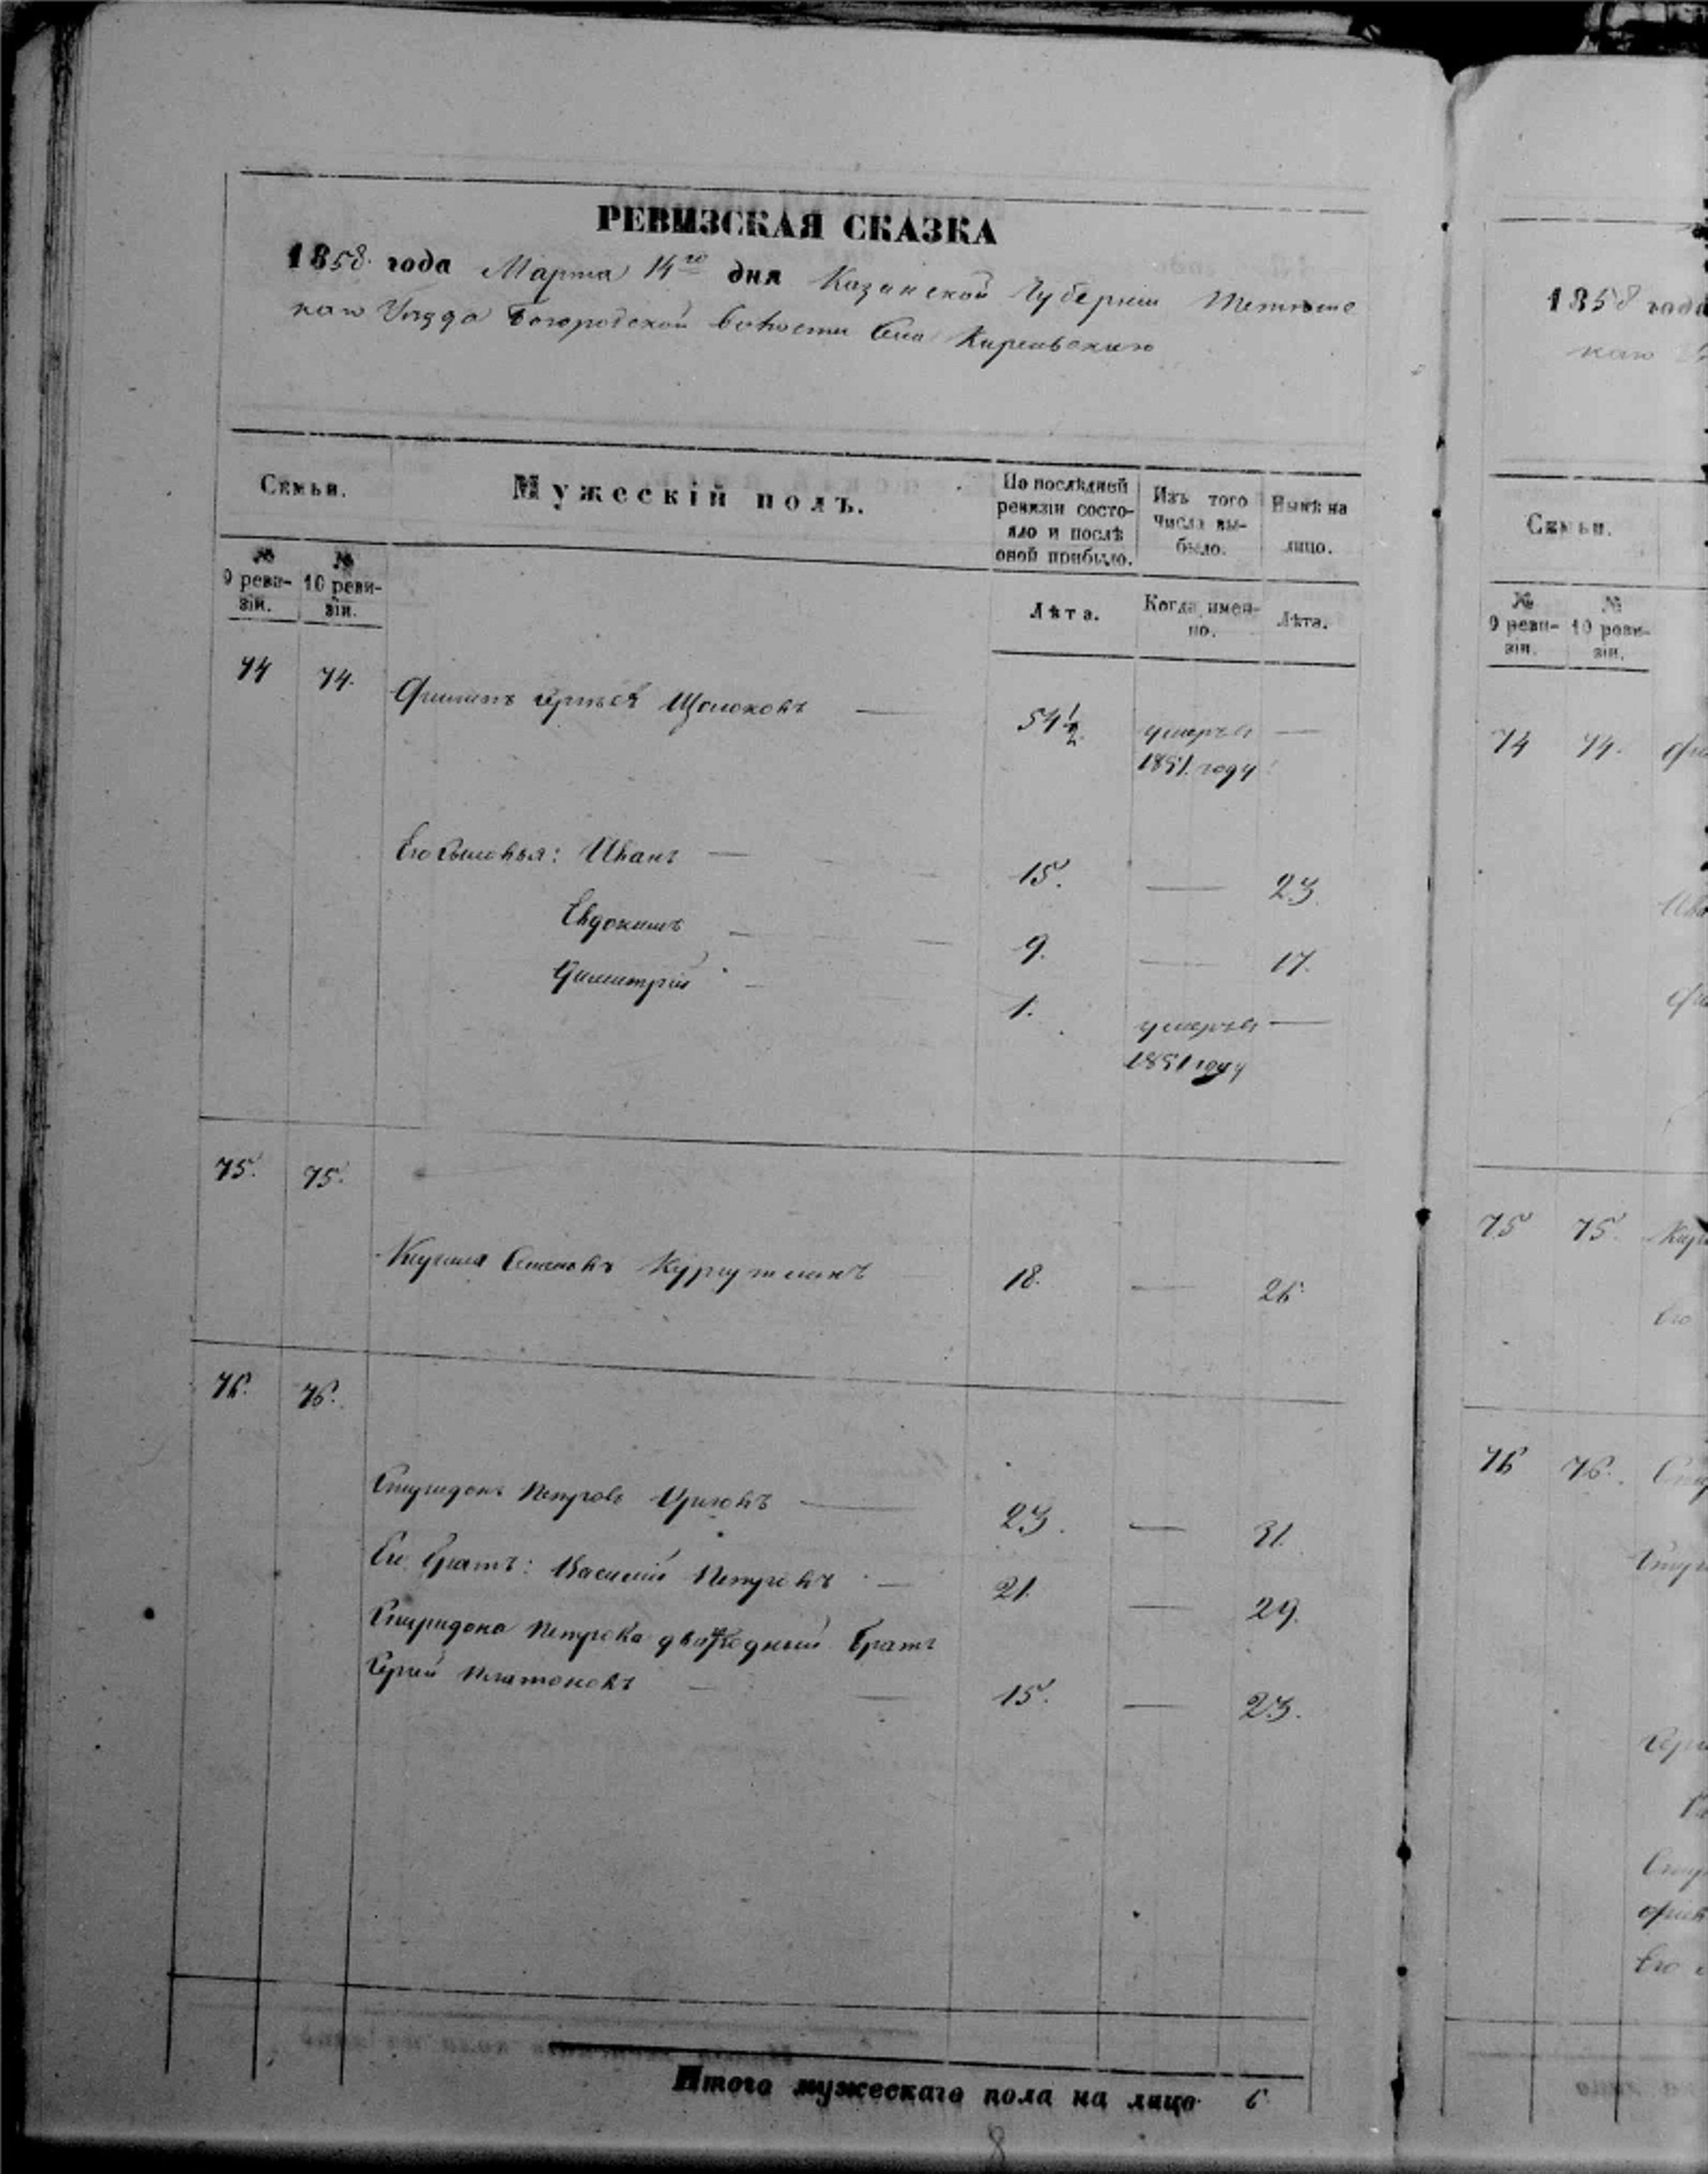 РЕВИЗСКАЯ СКАЗКА
1858 года Марта 14го дня Казанской Губернии Тетюшс
каго Уезда Богородской волости Села
Семьи.
Мужескій полъ.
По послѣдней ревизіи состояло и послѣ оной прибыло.
Изъ того числа выбыло.
Нынѣ на лицо.
№ 9 ревизіи.
№ 10 ревизіи.
Лѣта.
Когда имен-но.
Лѣта.
74 74. Филипъ Щолоковъ — 54 1/2 умеръ въ —
1851. году
Его сыновья: Иванъ — 15. — 23
Евдокимъ — 9. — 17.
Димитрій — 1. умеръ въ —
1851 году
75. 75.
Семеновъ 18. — 26
76. 76.
Спиридонъ Петровъ — 23. — 31.
Его братъ: Василій Петровъ — 21. — 29.
Спиридона Петрова двоюродный братъ
Сергѣй Платоновъ — 15. — 23.
Итого мужескаго пола на лицо 6
8
1858 года
каго
Семьи.
№ 9 ревизіи.
№ 10 ревизіи.
74 74.
75 75.
76 76.
Его